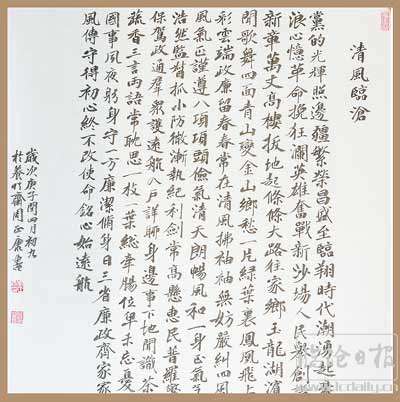 清風臨滄
黨的光輝照邊疆繁榮昌盛至臨翔時代潮湧起
浪心憶革命挽狂瀾英雄奮戰新沙場人民舉創
新章萬丈高樓拔地起條條大路往家鄉玉龍湖濱
聞歌舞四面青山變金山鄉愁一片綠葉裹鳳凰飛上
彩雲端政廉留春春常在清風拂袖袖無妨嚴糾四風
風氣正謹遵八項項頭儉氣清天朗暢風和一身正氣
浩然監督抓小防微漸執紀利劍常高懸惠民普羅
保駕政通群眾護遠航入戶詳聊身邊事下地閒識茶
蔬香三言兩語常耽思一枚一葉總牽腸位卑未忘憂
國事夙夜躬身守一方廉潔脩身日三省廉政齊家家
風傳守得初心終不改使命銘心始遠航
歲次庚子閏四月初九
於養竹齋周正康書
臨滄日报
lcdaily.cn